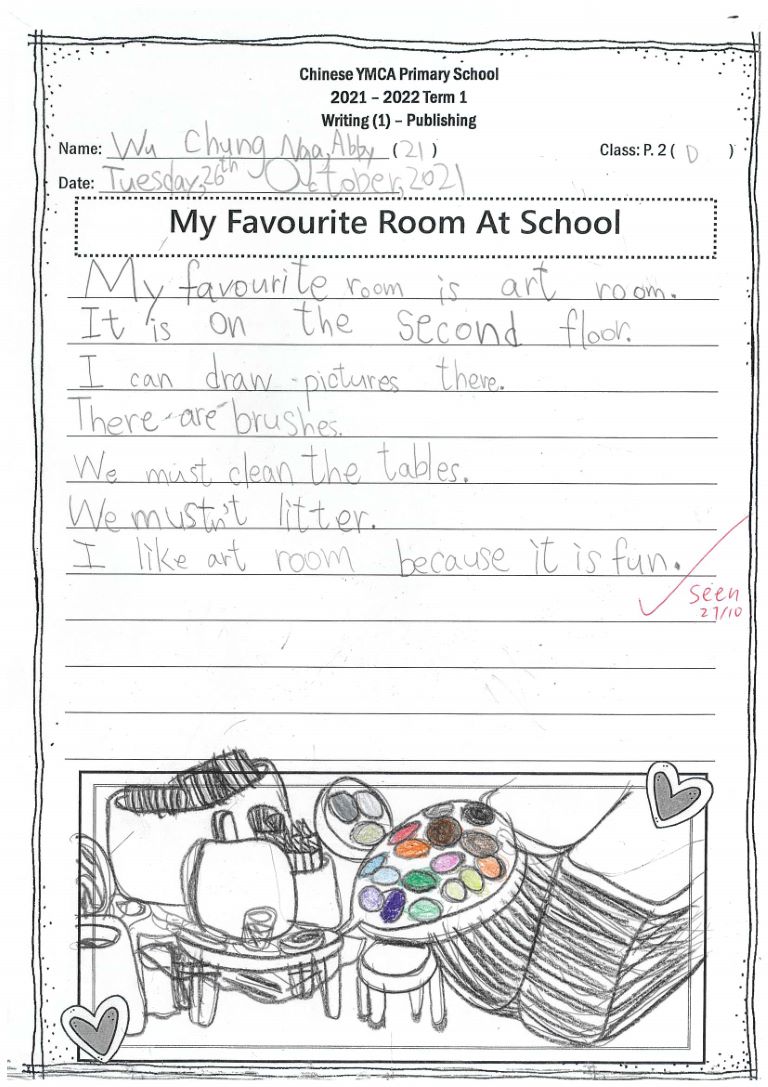 Chinese YMCA Primary School
2021 – 2022 Term 1
Writing (1) – Publishing
Name: Wu Chung Nga, Abby (21) Class: P. 2 ( D )
Date: Tuesday, 26th October, 2021
My Favourite Room At School
My favourite room is art room.
It is on the second floor.
I can draw pictures there.
There are brushes.
We must clean the tables.
We mustn't litter.
I like art room because it is fun.
Seen
27/10